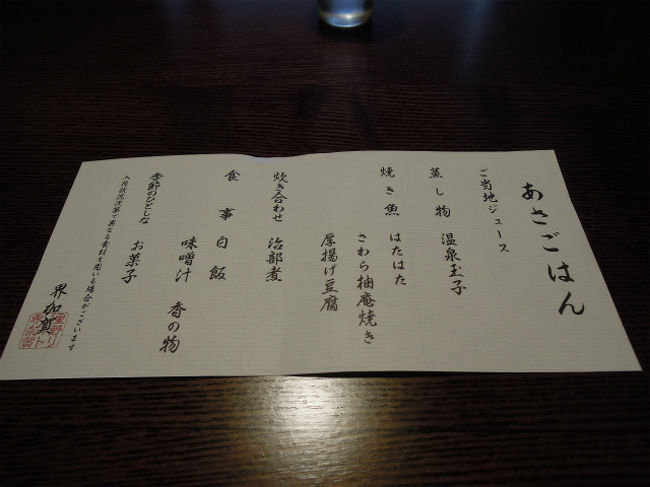 あさごはん
ご当地ジュース
蒸し物 温泉玉子
焼き魚 はたはた
さわら柚庵焼き
厚揚げ豆腐
炊き合わせ 治部煮
食事 白飯
味噌汁 香の物
季節のひとしな お菓子
入荷状況次第で異なる食材を用いる場合がございます
界 加賀